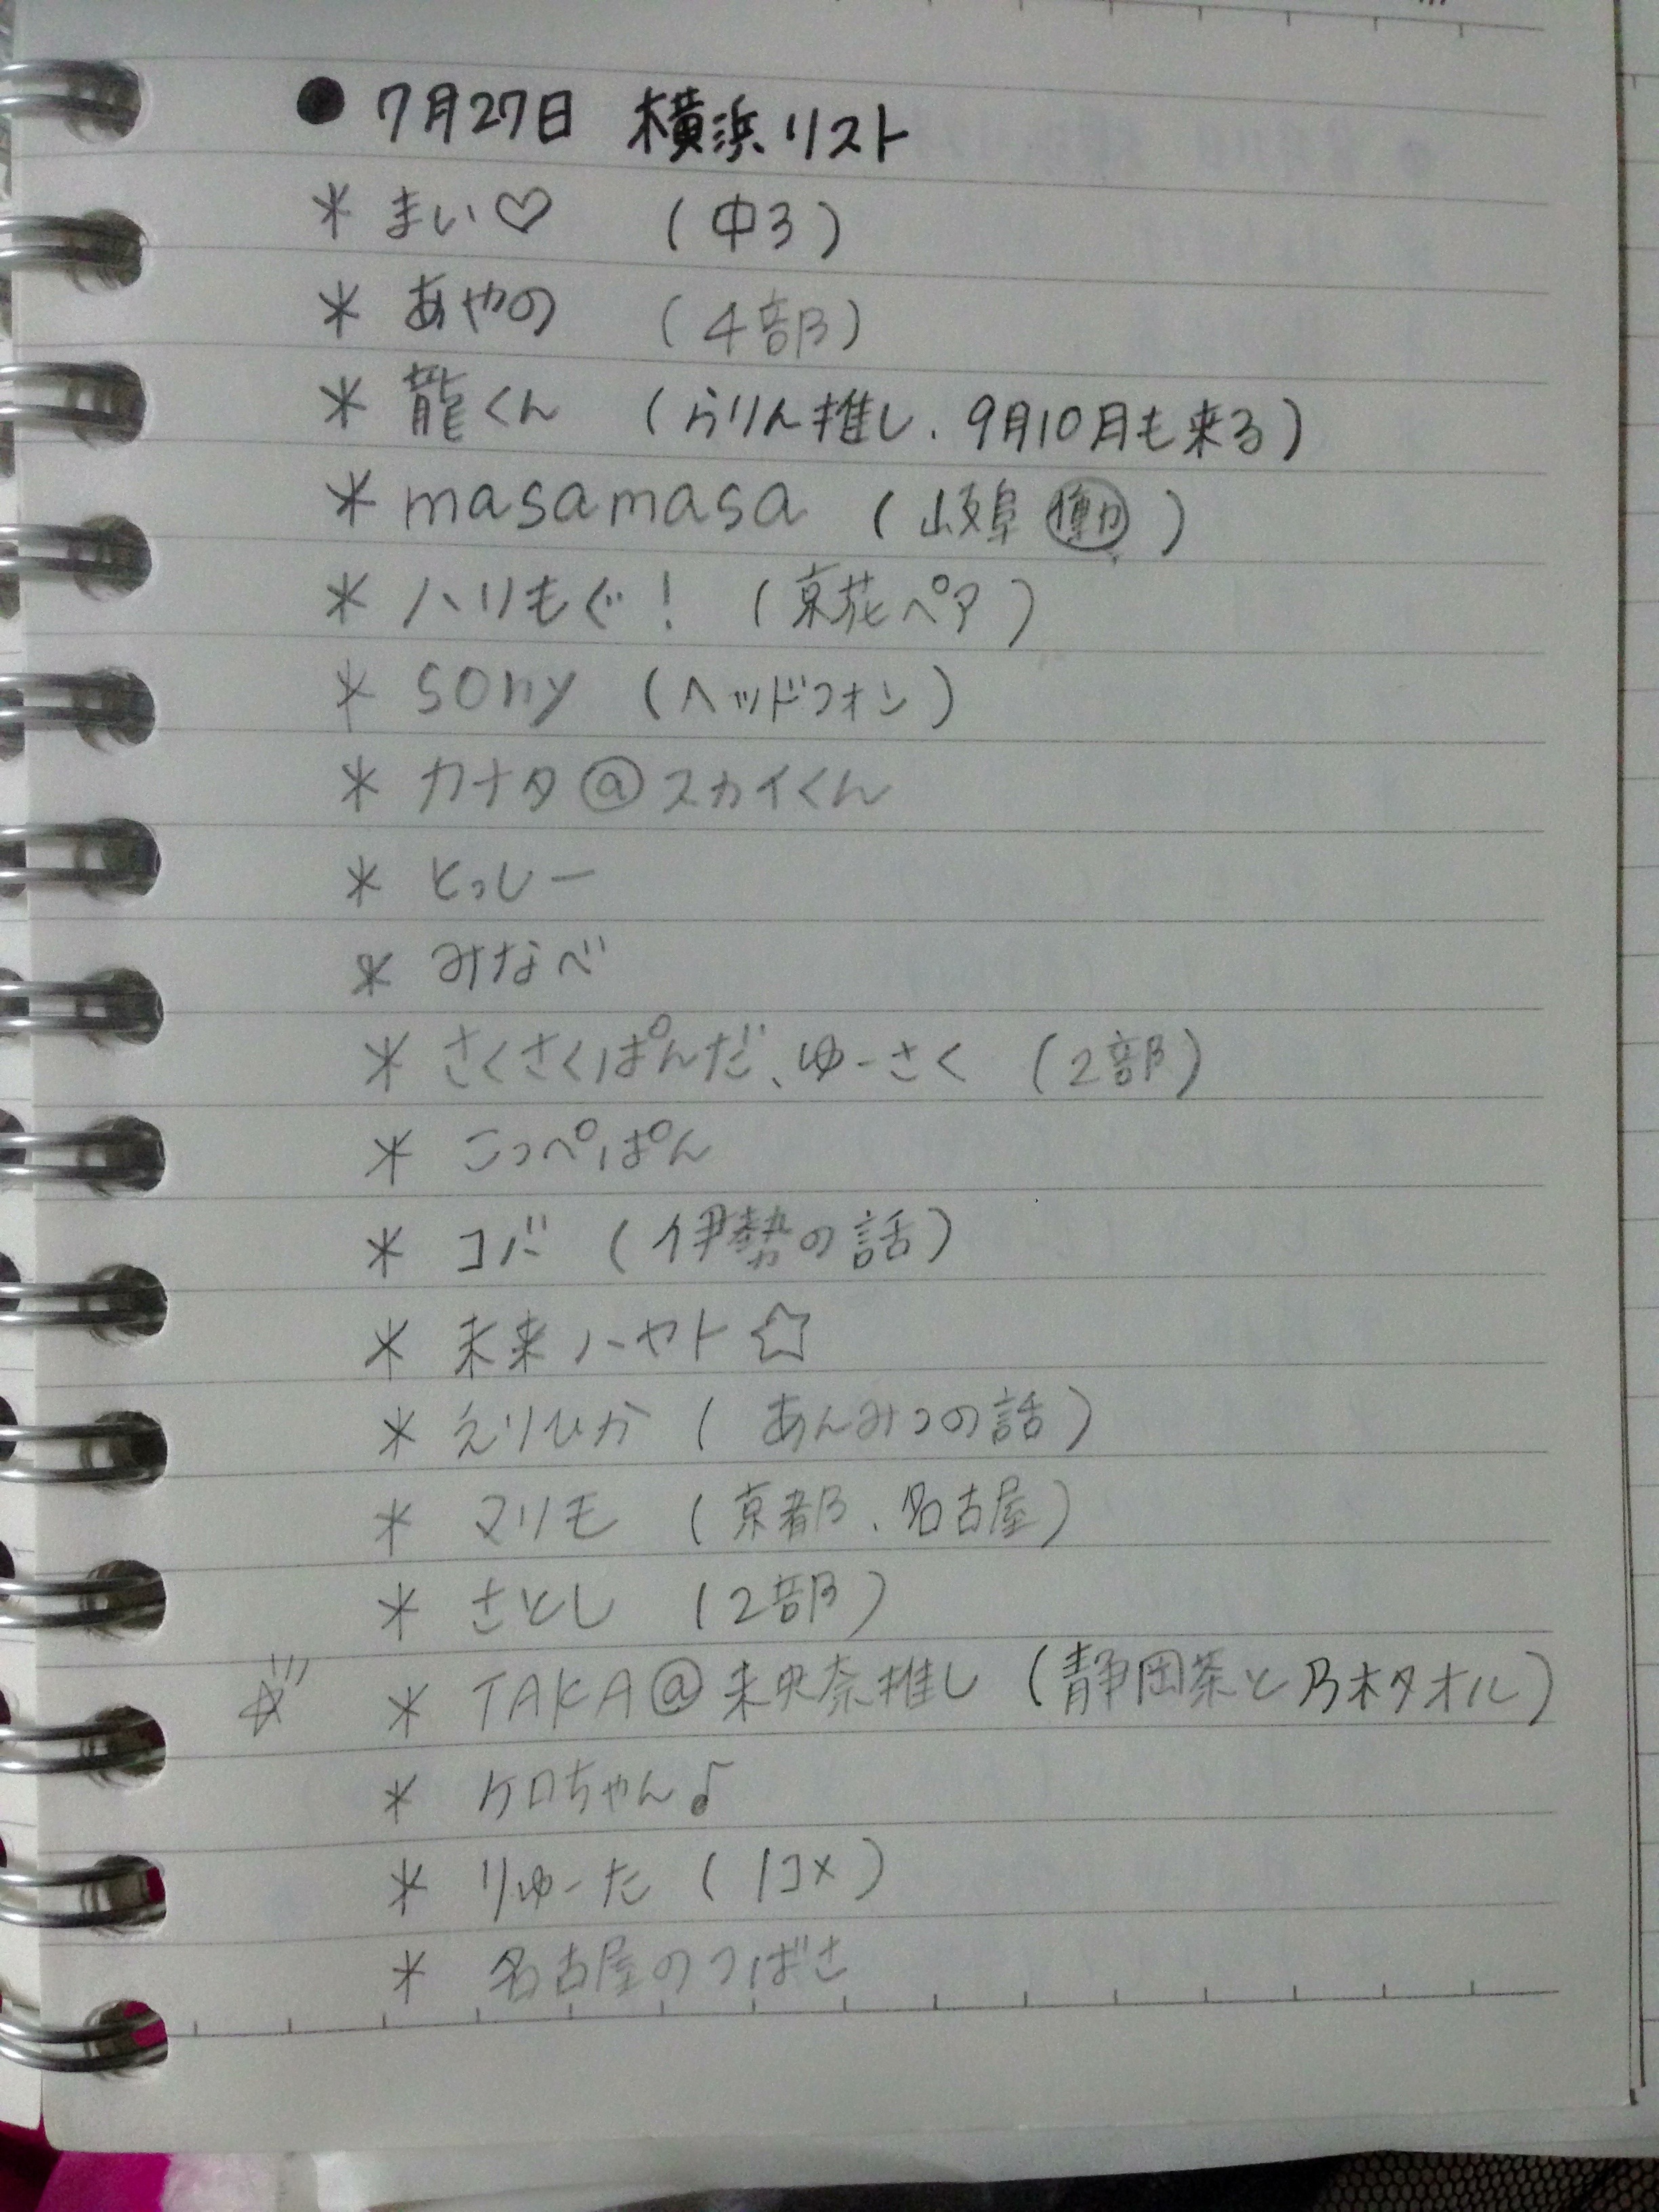 ● 7月27日 横浜リスト
* まい♡ (中3)
* あやの (4部)
* 龍くん (らりん推し、9月10月も来る)
* masamasa (岐阜 働)
* ハリもぐ! (京花ペア)
* sony (ヘッドフォン)
* カナタ@スカイくん
* とっしー
* みなべ
* さくさくぱんだ、ゆーさく (2部)
* こっぺぱん
* コバ (伊勢の話)
* 未来ハヤト☆
* えりひか (あんみつの話)
* マリモ (京都、名古屋)
* さとし (2部)
☆ * TAKA@未央奈推し (静岡茶と乃木タオル)
* ケロちゃん♪
* りゅーた (1コメ)
* 名古屋のつばさ